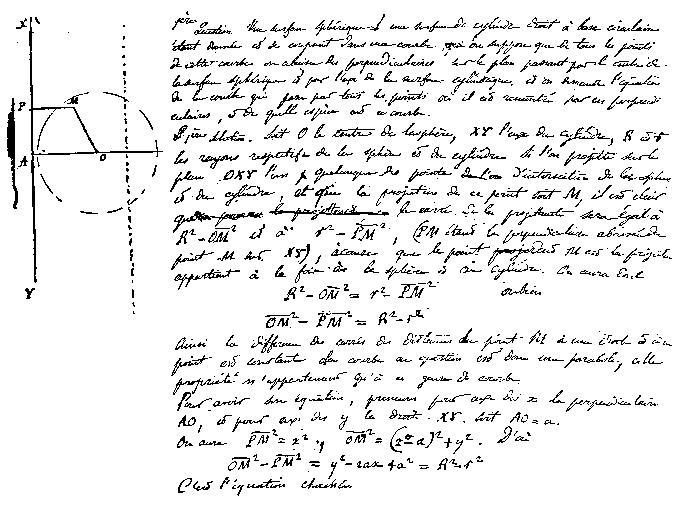 1ère Question. Une surface sphérique et une surface de cylindre droit à base circulaire
étant données et se coupant dans une courbe, on suppose que de tous les points
de cette courbe on abaisse des perpendiculaires sur le plan passant par le centre de
la surface sphérique et par l'axe de la surface cylindrique, et on demande l'équation
de la courbe qui passe par tous les points où il est rencontré par ces perpendi
culaires, et de quelle espèce est ce courbe.
Solution. Soit O le centre de la sphère, XY l'axe du cylindre, R et r
les rayons respectifs de la sphère et du cylindre. Si l'on projette sur le
plan OXY l'un quelconque des points d'intersection de la sphère
et du cylindre, et que la projection de ce point soit M, il est clair
que le carré de la projetante sera égal à
R² - OM² et à r² - PM², (PM étant la perpendiculaire abaissée du
point M sur XY), à cause que le point M est la projection
appartient à la fois à la sphère et au cylindre. On aura donc
R² - OM² = r² - PM² ou bien
OM² - PM² = R² - r²
Ainsi la différence des carrés des distances du point M à une droite et à un
point est constante. La courbe en question est donc une parabole, cette
propriété n'appartenant qu'à ce genre de courbe.
Pour avoir son équation, prenons pour axe des x la perpendiculaire
AO, et pour axe des y la droite XY. Soit AO = a.
On aura PM² = x², OM² = (x - a)² + y². D'où
OM² - PM² = y² - 2ax + a² = R² - r²
C'est l'équation cherchée
X
P
M
A
O
Y